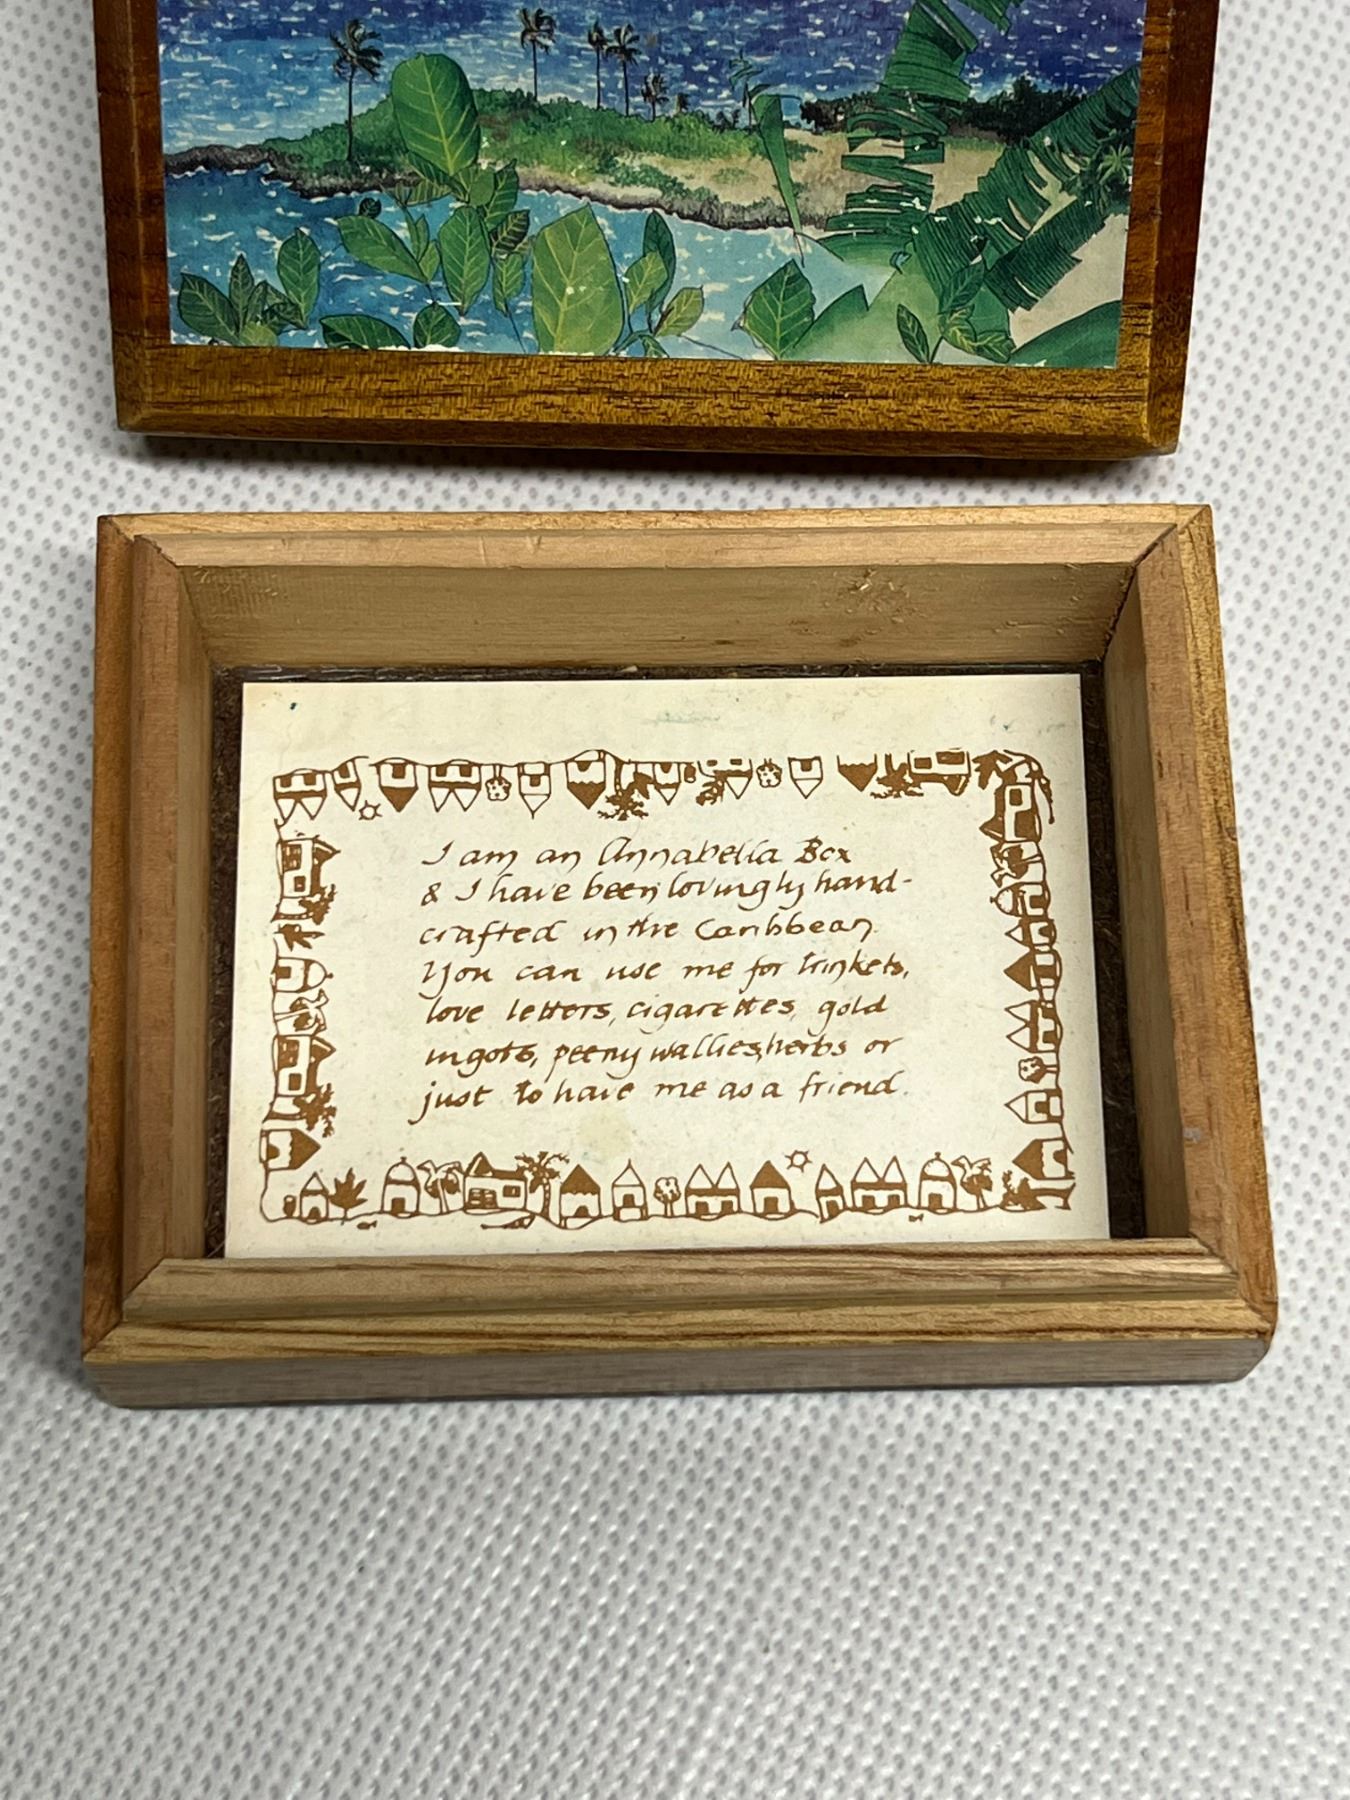 I am an Annabella Box
& I have been lovingly hand-
crafted in the Caribbean.
You can use me for trinkets,
love letters, cigarettes, gold
ingots, peeny wallies, herbs or
just to have me as a friend.